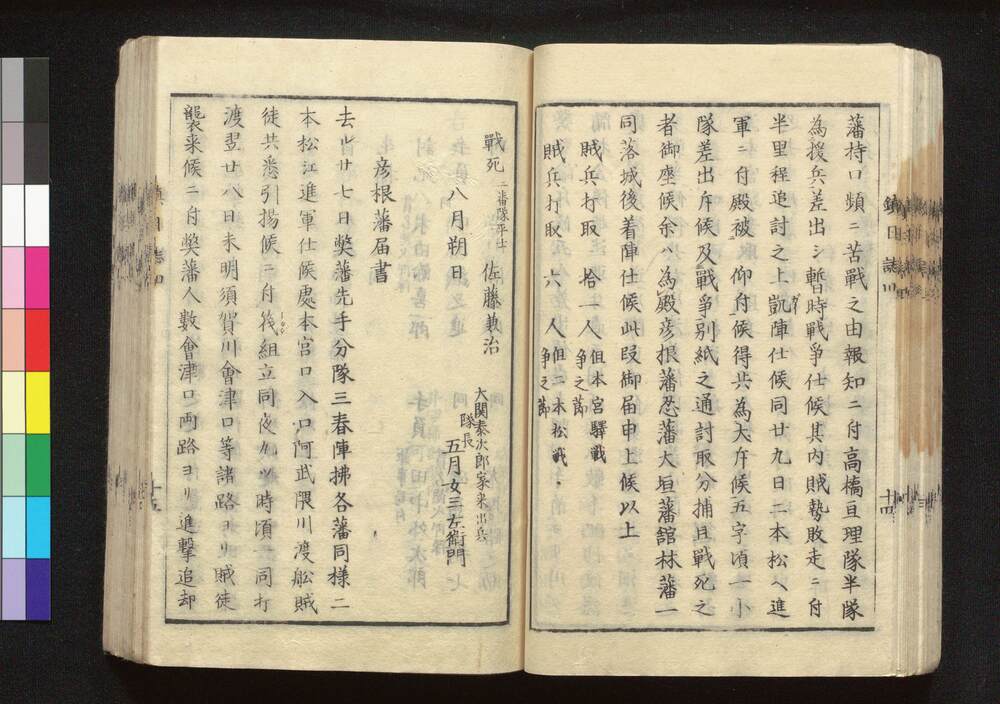 藩持口頻ニ苦戰之由報知ニ付高橋亘理隊半隊
為援兵差出シ暫時戰爭仕候其内賊勢敗走ニ付
半里程追討之上凱陣仕候同廿九日二本松へ進
軍ニ付殿被仰付候得共為大斥候五字頃一小
隊差出斥候及戰爭別紙之通討取分捕且戰死之
者御座候余ハ為殿彦根藩忍藩大垣藩舘林藩一
同落城後着陣仕候此段御届申上候以上
賊兵打取 拾一人 但本宮驛戰爭之節
賊兵打取 六人 但二本松戰爭之節
戰死 二番隊平士 佐藤兼治
大関泰次郎家来出兵
隊長 五月女三左衛門
八月朔日
彦根藩届書
去ル廿七日獘藩先手分隊三春陣拂各藩同様二
本松江進軍仕候處本宮口入口阿武隈川渡舩賊
徒共悉引揚候ニ付筏組立同夜九ツ時頃一同打
渡翌廿八日未明須賀川會津口等諸路ヨリ賊徒
襲来候ニ付獘藩人數會津口両路ヨリ進撃追却
鎮日誌川
十四
十五